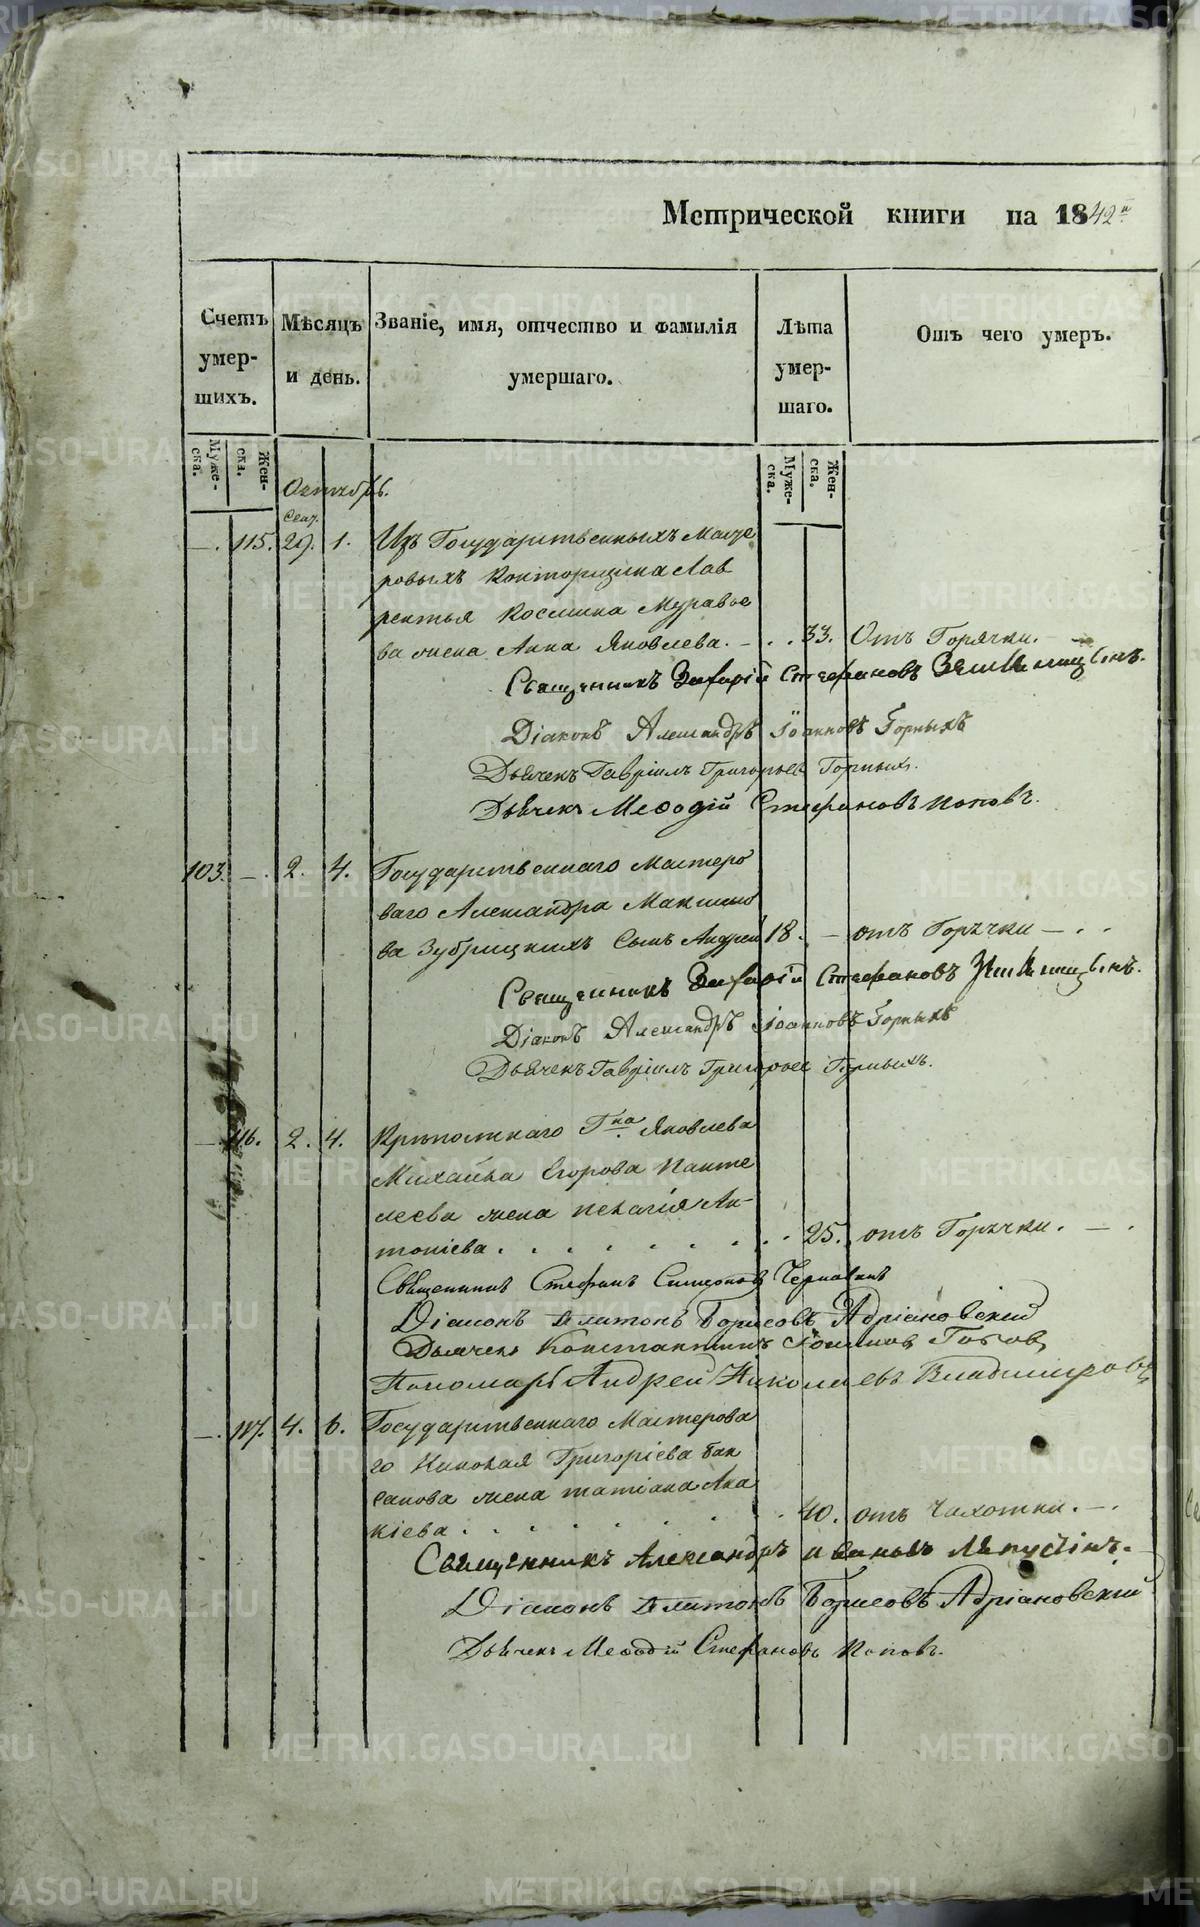 Метрической книги на 1842й
Счетъ умер-шихъ.
Мѣсяцъ и день.
Званіе, имя, отчество и фамилія умершаго.
Лѣта умер-шаго.
Отъ чего умеръ.
Муже-ска.
Жен-ска.
Муже-ска.
Жен-ска.
Октябрь.
Сент.
—. 115. 29. 1. Изъ Государственныхъ Масте
ровыхъ Конторщика Лав
рентья Космина Муравье
ва жена Анна Яковлева. — . . 33. Отъ Горячки. —
Священникъ Захарій Стефановъ
Діаконъ Александръ Іоанновъ Горныхъ
Дьячекъ Гавріилъ Григорьевъ Горныхъ.
Дьячекъ Меѳодій Стефановъ Поповъ.
103. —. 2. 4. Государственнаго Мастеро
ваго Александра Максимо
ва Зубрицкихъ Сынъ Андрей 18. — отъ Горячки — . .
Священникъ Захарій Стефановъ
Діаконъ Александръ Іоанновъ Горныхъ
Дьячекъ Гавріилъ Григорьевъ Горныхъ.
—. 116. 2. 4. Крѣпостнаго Гна Яковлева
Михайла Егорова Панте
леева жена Пелагія Ан-
тоніева . . . . . . . . 25. отъ Горячки. — .
Священникъ Стефанъ Симеоновъ
Діаконъ Платонъ Борисовъ Адріановскій
Дьячекъ Константинъ
Пономарь Андрей Николаевъ Владимировъ
—. 117. 4. 6. Государственнаго Мастерова
го Николая Григоріева Бак
санова жена Татіана Ака
кіева . . . . . . . 40. отъ Чахотки. — .
Священникъ Александръ Ивановъ
Діаконъ Платонъ Борисовъ Адріановскій
Дьячекъ Меѳодій Стефановъ Поповъ.
METRIKI.GASO-URAL.RU